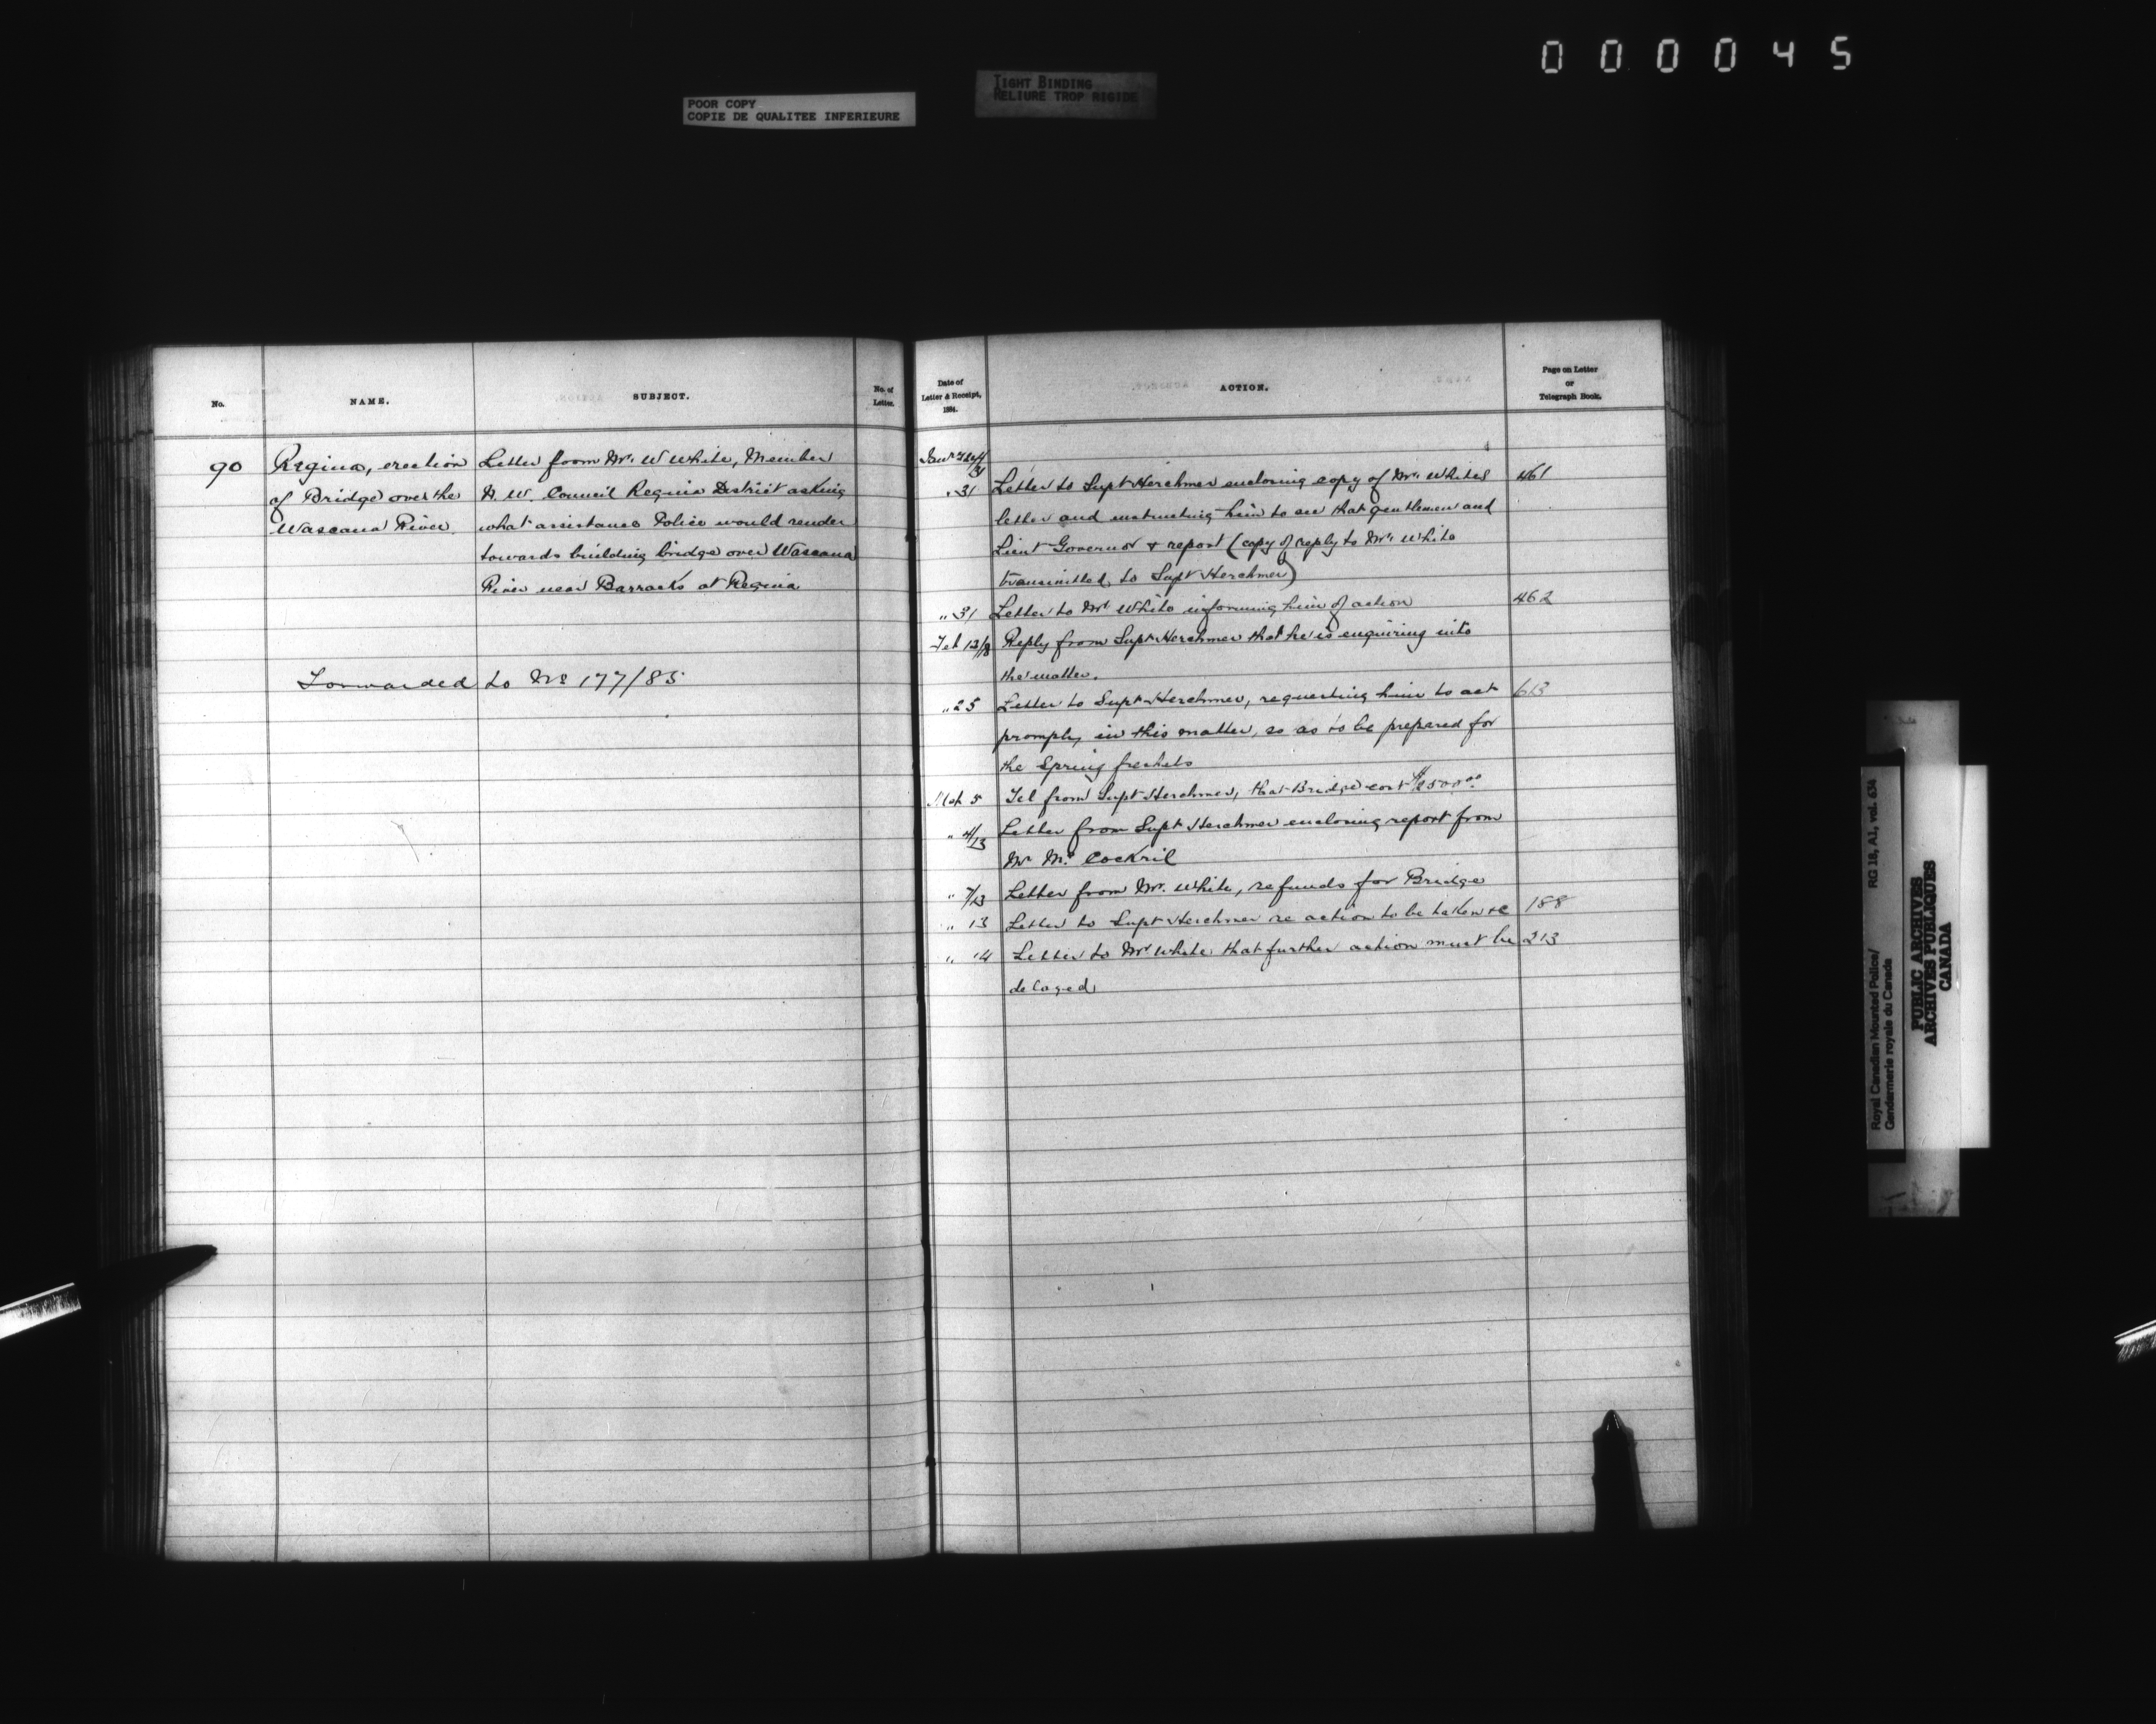 000045
POOR COPY
COPIE DE QUALITEE INFERIEURE
TIGHT BINDING
RELIURE TROP RIGIDE
No.
NAME.
SUBJECT.
No. of
Letter.
90
Regina, erection
of Bridge over the
Wascana River.
Letter from Mr. W White, Member
N. W. Council Regina District asking
what assistance Police would render
towards building bridge over Wascana
River near Barracks at Regina
Forwarded to No 177/85
Date of
Letter & Receipt,
1884.
ACTION.
Page on Letter
or
Telegraph Book.
" 31 Letter to Supt Herchmer enclosing copy of Mr. Whites 461
letter and instructing him to see that gentleman and
Lieut Governor & report (copy of reply to Mr. White
transmitted to Supt Herchmer)
" 31 Letter to Mr White informing him of action 462
Feb 13/18 Reply from Supt Herchmer that he is enquiring into
the matter.
" 25 Letter to Supt Herchmer, requesting him to act 613
promptly in this matter, so as to be prepared for
the Spring freshets
Mch 5 Tel from Supt Herchmer, that Bridge cost
" 4/13 Letter from Supt Herchmer enclosing report from
Mr Mc Cockril
" 7/13 Letter from Mr. White, refunds for Bridge
" 13 Letter to Supt Herchmer re action to be taken &c 188
" 14 Letter to Mr White that further action must be 213
delayed
Royal Canadian Mounted Police/ RG 18, A1, vol. 634
Gendarmerie royale du Canada
PUBLIC ARCHIVES
ARCHIVES PUBLIQUES
CANADA